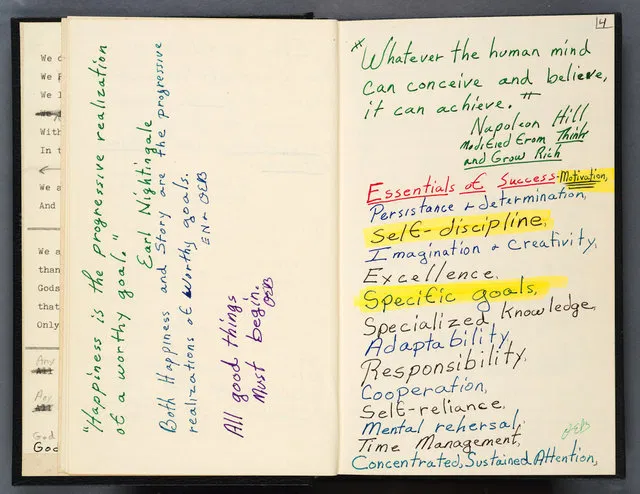 We d
We p
We l
With
In t
We a
And
We a
than
Gods
that
Only
Any
All
Any
All
God
God
"Happiness is the progressive realization
of a worthy goal."
Earl Nightingale
Both Happiness and Story are the progressive
realizations of worthy goals.
EN & OEB
All good things
Must begin.
OEB
14
* "Whatever the human mind
can conceive and believe,
it can achieve."
Napoleon Hill
Modified From Think
and Grow Rich
Essentials of Success-Motivation,
Persistance & determination,
Self-discipline,
Imagination & Creativity,
Excellence.
Specific goals,
Specialized Knowledge,
Adaptability,
Responsibility,
Cooperation,
Self-reliance.
Mental rehersal,
Time Management,
OEB
Concentrated, Sustained Attention,